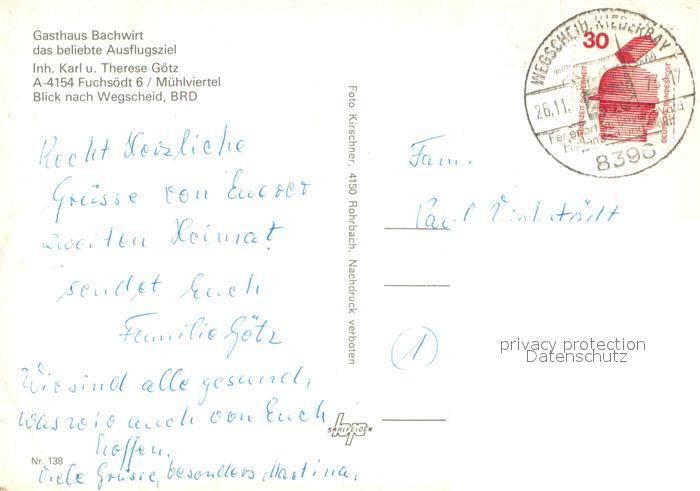 Gasthaus Bachwirt
das beliebte Ausflugsziel
Inh. Karl u. Therese Götz
A-4154 Fuchsödt 6 / Mühlviertel
Blick nach Wegscheid, BRD
Recht Herzliche
Grüsse von Euerer
zweiten Heimat
sendet Euch
Familie Götz
Wir sind alle gesund,
was wir auch von Euch
hoffen.
Viele Grüsse, besonders Martina.
Nr. 138
Foto Kirschner, 4150 Rohrbach, Nachdruck verboten
SAALFELDEN
WEGSCHEID, NIEDERBAY
26.11.
8396
30
DEUTSCHE BUNDESPOST
Fam.
Karl
(1)
privacy protection
Datenschutz